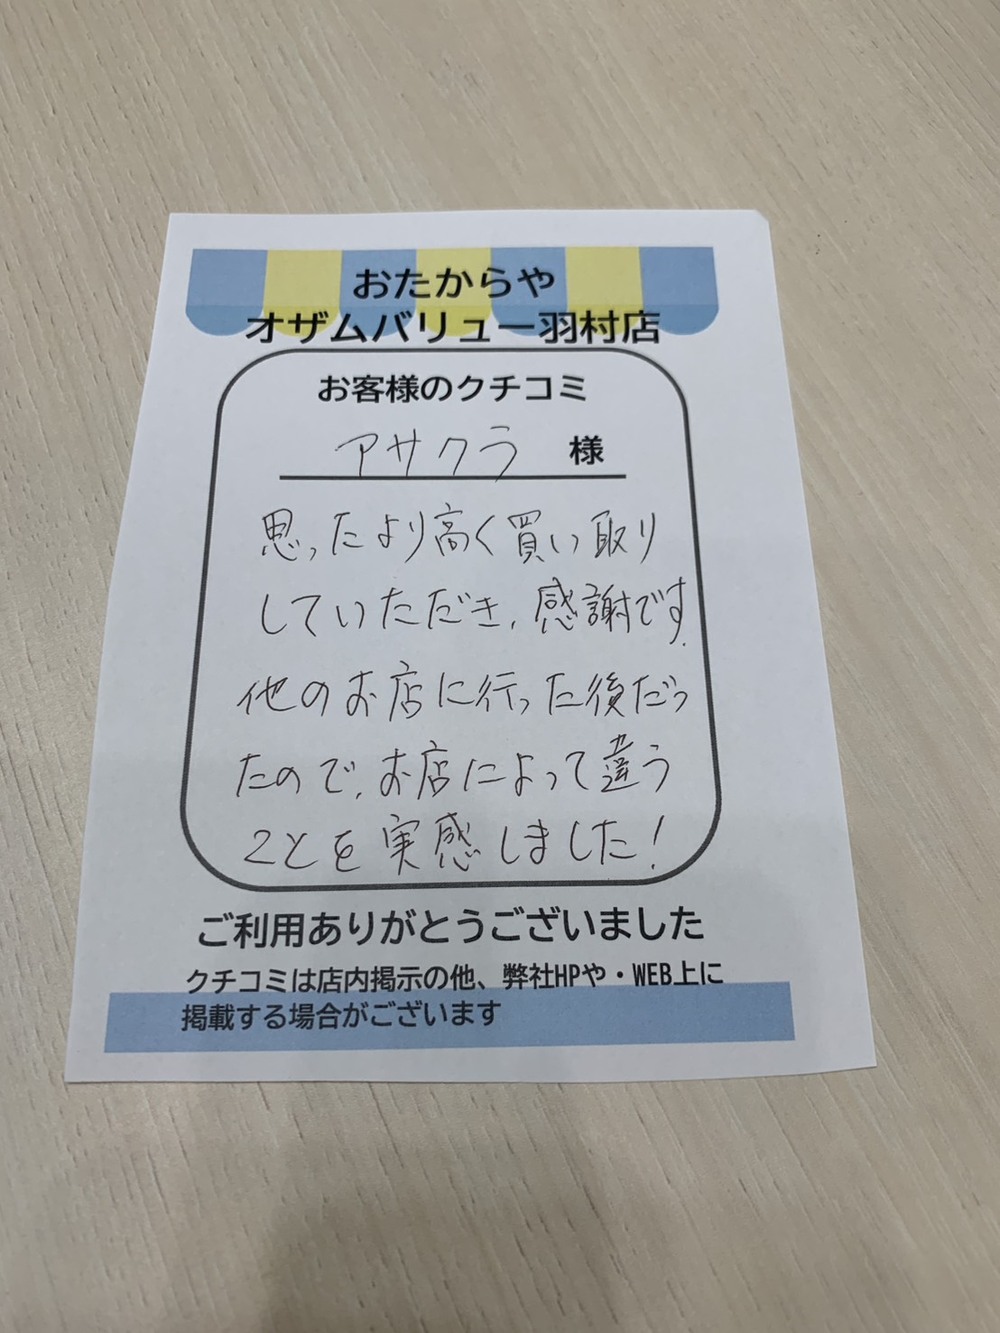 おたからや
オザムバリュー羽村店
お客様のクチコミ
アサクラ 様
思ったより高く買い取り
していただき、感謝です。
他のお店に行った後だっ
たので、お店によって違う
ことを実感しました!
ご利用ありがとうございました
クチコミは店内掲示の他、弊社HPや・WEB上に
掲載する場合がございます